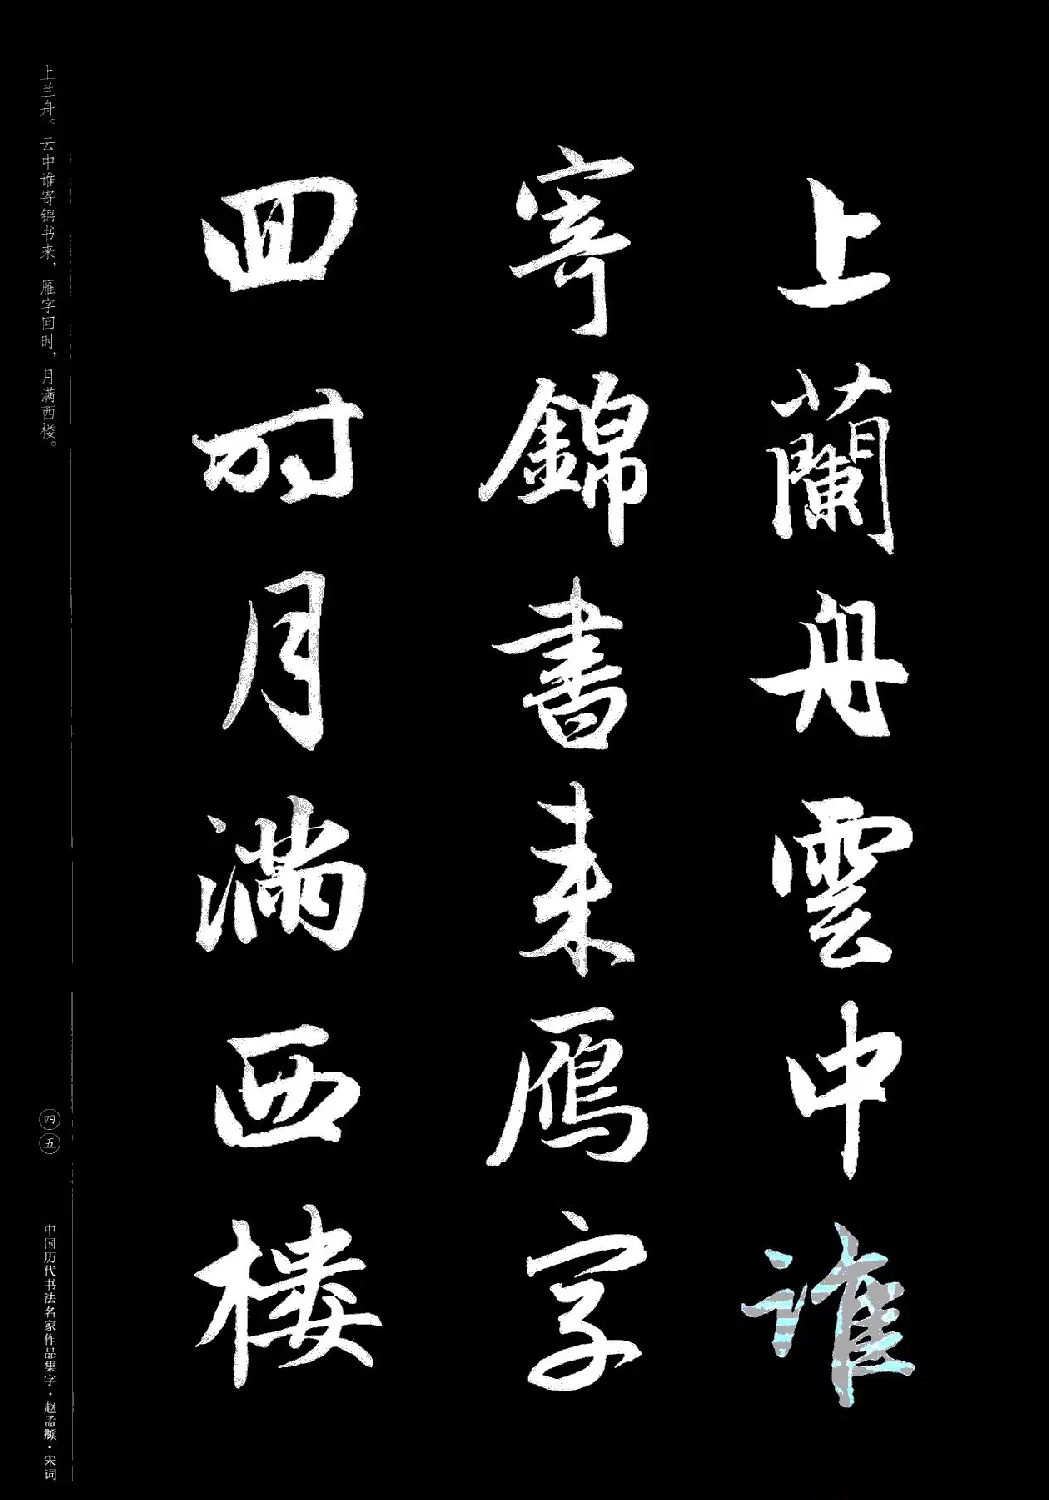 上蘭舟雲中誰
寄錦書来鴈字
回时月满西楼
上兰舟。云中谁寄锦书来，雁字回时，月满西楼。
四五
中国历代书法名家作品集字·赵孟頫·宋词